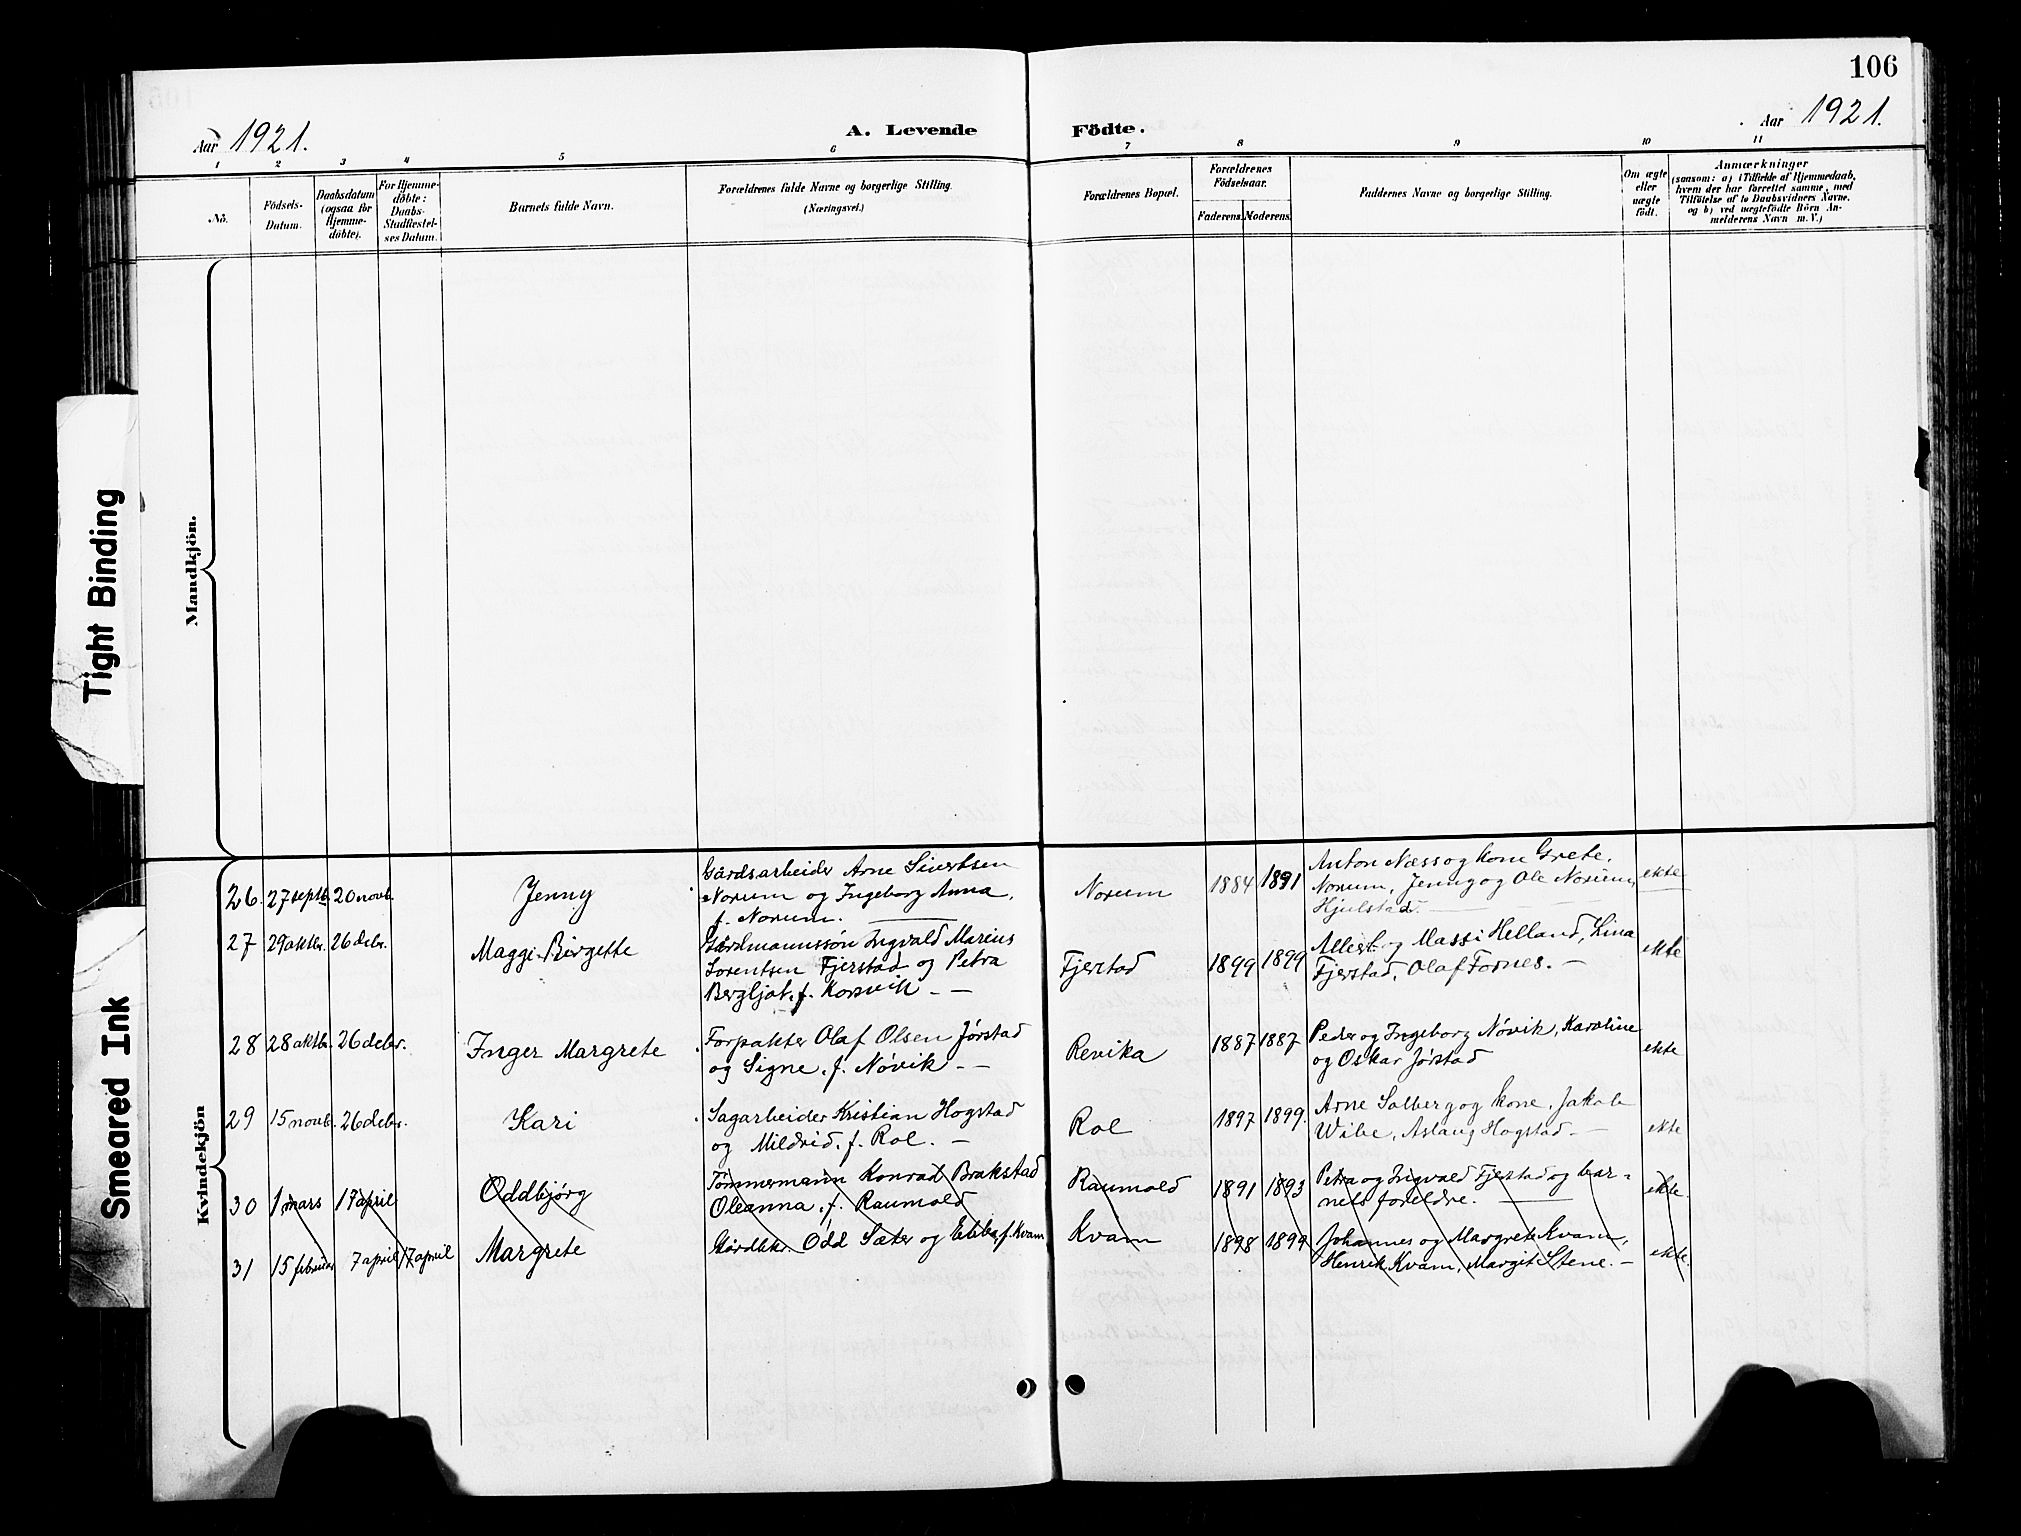 106
Aar 1921.
A. Levende Födte.
Aar 1921.
1 2 3 4 5 6 7 8 9 10 11
No.
Födsels-
Datum.
Daabsdatum
(ogsaa for
Hjemme-
döbte).
For Hjemme-
döbte:
Daabs-
Stadfæstel-
ses Datum.
Barnets fulde Navn.
Forældrenes fulde Navne og borgerlige Stilling.
(Næringsvei.)
Forældrenes Bopæl.
Forældrenes
Födselsaar.
Faderens. Moderens.
Faddernes Navne og borgerlige Stilling.
Om ægte
eller
uægte
födt.
Anmærkninger
(saasom: a) i Tilfælde af Hjemmedaab,
hvem der har forrettet samme, med
Tilföielse af to Daabsvidners Navne,
og b) ved uægtefödte Börn An-
melderens Navn m. V.)
Mandkjön.
Kvindekjön
Tight Binding
Smeared Ink
26. 27 septb. 20 novb. Jenny
Gårdsarbeider Arne Sivertsen
Norum og Ingeborg Anna,
f. Norum.
Norum 1884 1891
Anton Næss og kone Grete,
Norum, Jenny og Ole Norum,
Hjulstad.
ekte
27 29 oktbr. 26 debr. Maggi Birgette
Gårdmannssøn Ingvald Marius
Sorentsen Fjerstad og Petra
Bergljot, f. Korsvik -
Fjerstad 1899 1899
og Massi Helland, Lina
Fjerstad, Olaf Fornes. -
ekte
28 28 oktbr. 26 debr. Inger Margrete
Forpakter Olaf Olsen Jørstad
og Signe, f. Nøvik -
Revika 1887 1887
Peder og Ingeborg Nøvik, Karoline
og Oskar Jørstad
ekte
29 15 novb. 26 debr. Kari
Sagarbeider Kristian Hogstad
og Mildrid, f. Rol. -
Rol 1897 1899.
Arne Solberg og kone, Jakob
Wibe, Aslaug Hogstad -
ekte
30 1 mars 17 april Oddbjørg
Tømmermann Konrad Brakstad
Oleanna, f. Raumold
Raumold 1891 1893
Petra og Ingvald Fjerstad og bar-
nets foreldre.
ekte
31 15 februar 7 april 17 april Margrete
Odd Sæter og f. Kvam
Kvam 1898 1899
Johannes og Margrete Kvam,
Henrik Kvam, Margit Stene. -
ekte.